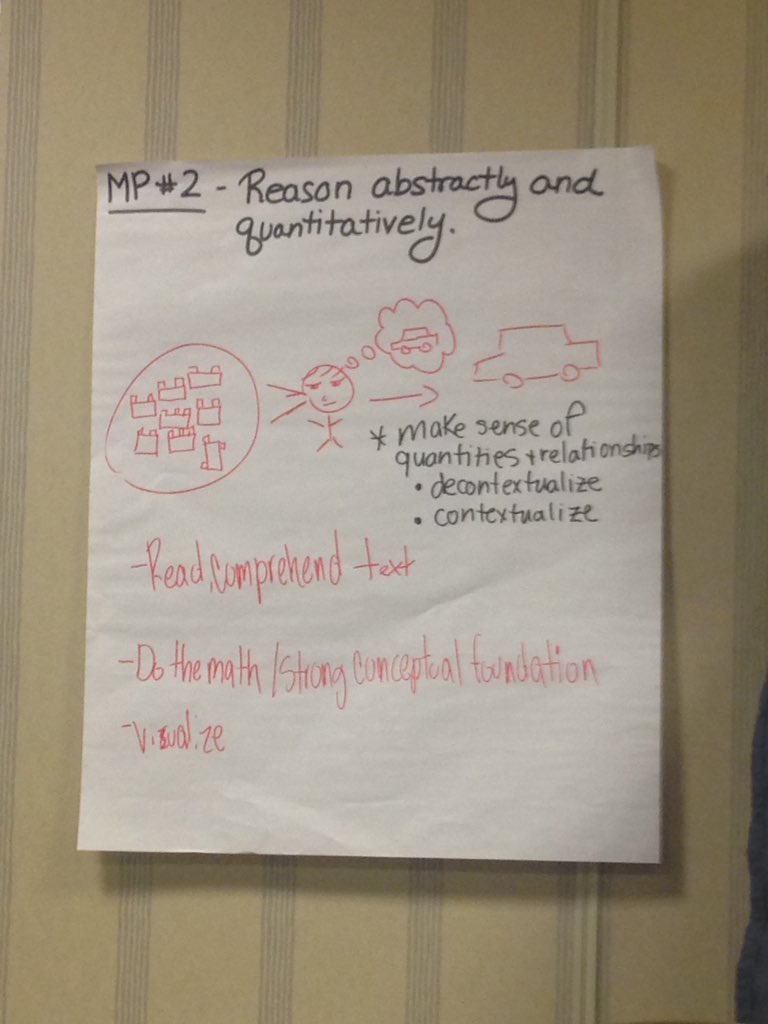 MP #2 - Reason abstractly and
quantitatively.
* make sense of
quantities + relationships
• decontextualize
• contextualize
- Read, comprehend text
- Do the math / strong conceptual foundation
- Visualize